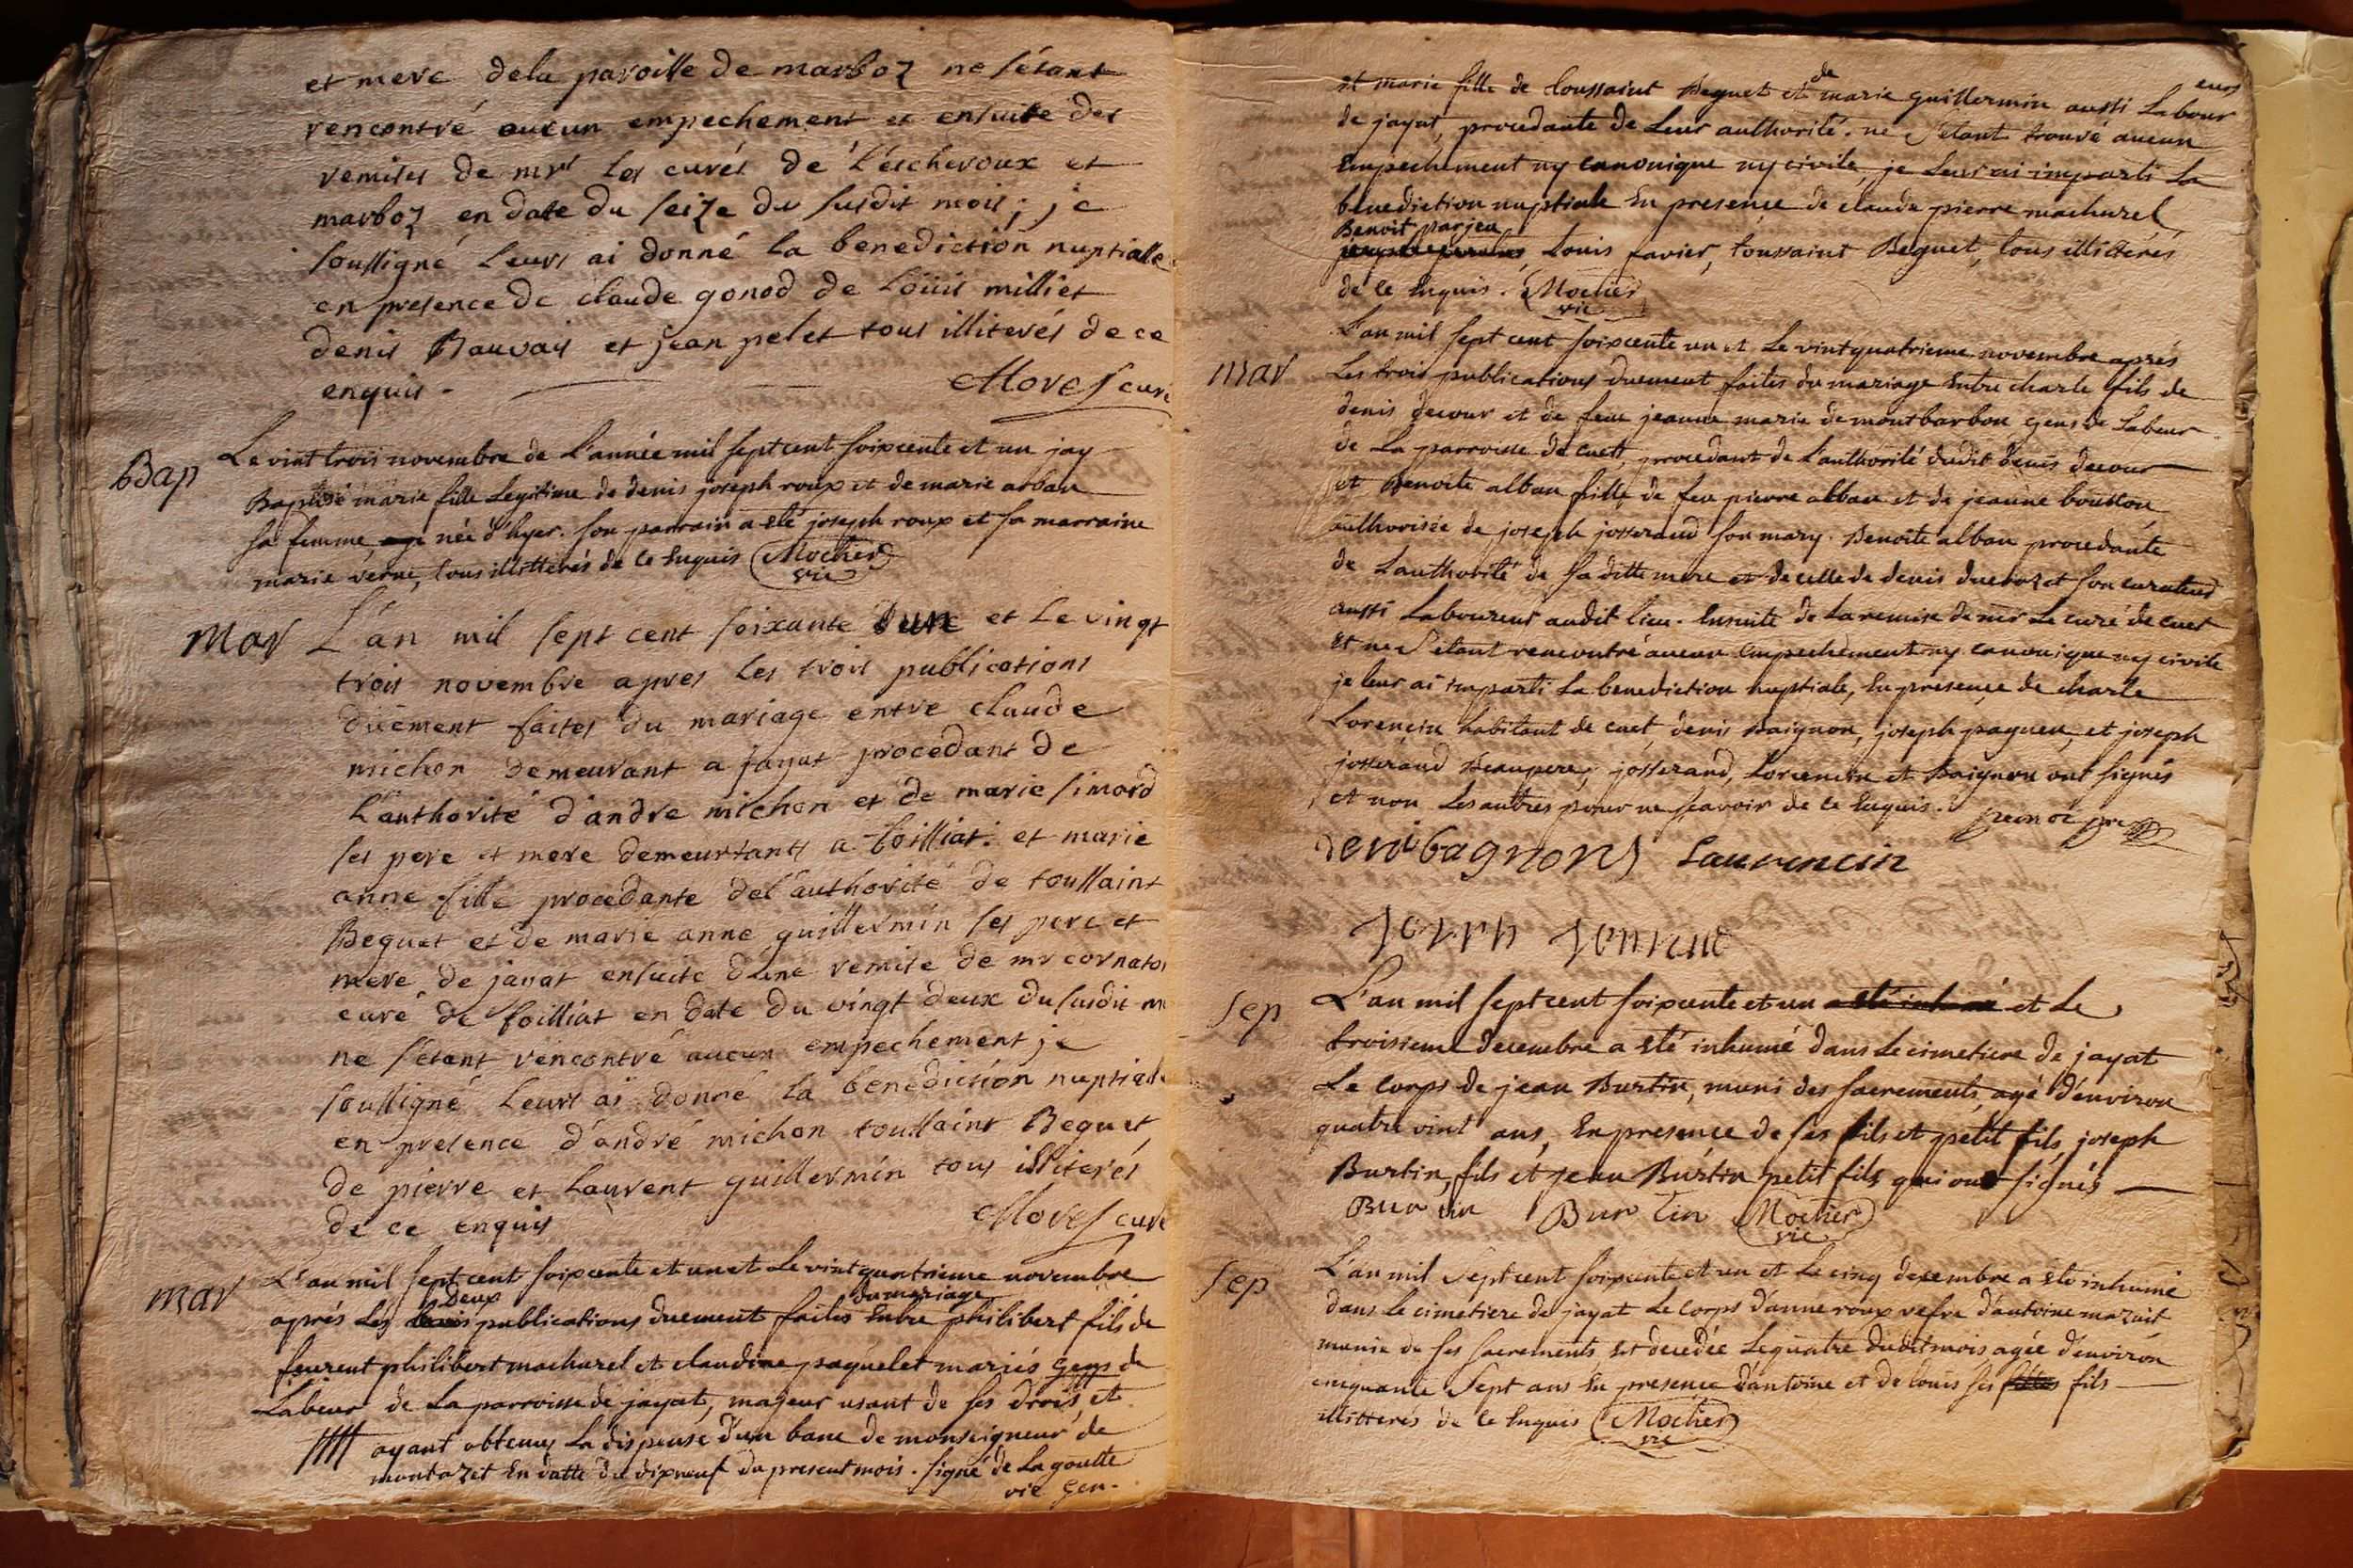 et mere dela paroisse de marboz ne s'étant
rencontré aucun empechement et ensuite des
remises de mrs les curés de L'escheroux et
marboz en date du seize du susdit mois ; je
soussigné Leurs ai donné la benediction nuptialle
en presence de claude gonod de Loüis milliet
denis Bauvais et jean pelet tous illiterés de ce
enquis. Mores curé
Bap Le vint trois novembre de L'année mil sept cent soixcente et un jay
Baptisé marie fille Legitime de denis joseph roux et de marie alban
sa femme, née d'hyer. son parrain a eté joseph roux et sa marraine
marie verne, tous illitterés de ce Enquis Mochier
vic
Mar L'an mil sept cent soixante Dune et Le vingt
trois novembre apres les trois publications
düement faites du mariage entre claude
michon demeurant a jayat procedant de
L'authorité d'andre michon et de marie simord
ses pere et mere demeurtants a foilliat. et marie
anne fille procedante del'authorité de toussaint
Beguet et de marie anne guillermin ses pere et
mere de jayat ensuite dune remise de mr cornaton
curé de foilliat en date du vingt deux du susdit m
ne s'etant rencontré aucun empechement je
soussigné Leurs ai donné la benediction nuptiale
en presence d'andré michon toussaint Beguet
de pierre et Laurent guillermin tous illiterés
de ce enquis Mores curé
mar L'an mil sept cent soixcente et un et Le vint quatrieme novembre
deux du mariage
aprés Les trois publications duement faites Entre philibert fils de
feurent philibert machurel et claudine paquelet mariés gens de
Labeur de La parroisse de jayat, majeur usant de ses droits, et
ayant obtenus La dispense d'un banc de monseigneur de
montazet En datte du dixneuf du present mois. signé de La goutte
vic gen.
de eurs
et marie fille de toussaint Beguet et marie guillermin aussi Labour
de jayat, procedante de Leur authorité. ne s'etant trouvé aucun
Empechement ny canonique ny civile, je Leur ai imparti La
benediction nuptiale En presence de claude pierre machurel
Benoit parjeu
Louis favier, toussaint Beguet, tous illitterés
de ce Enquis. Mochier
vic
mar L'an mil sept cent soixcente un et Le vint quatrieme novembre aprés
Les trois publications duement faites du mariage Entre charle fils de
denis decour et de feue jeanne marie demontbarbon gens de Labeur
de La parroisse de cuet, procedant de L'authorité dudit denis decour
et Benoite alban fille de feu pierre alban et de jeanne bousson
authorisée de joseph josserand son mary. Benoite alban procedante
de L'authorité de sa ditte mere et de celle de denis ducrozet son curateur
aussi Laboureur audit lieu. Ensuite de La remise de mr Le curé de cuet
et ne s'etant rencontré aucun Empechement ny canonique ny civile
je leur ai imparti La benediction nuptiale, En presence de charle
Lorencin habitant de cuet, denis Baignon, joseph pagneu, et joseph
josserand Beaupere, josserand, Lorencin et Baignon ont signés
et non Les autres pour ne sçavoir de ce Enquis.
denibagnons Laurencin
Sep L'an mil sept cent soixcente et un a eté inhumé et Le
troisieme decembre a eté inhumé dans Le cimetiere de jayat
Le corps de jean Burtin, muni des sacrements, agé d'environ
quatre vint ans, En presence de ses fils et petit fils, joseph
Burtin, fils et jean Burtin petit fils qui ont signés
Burtin Burtin Mochier
vic
Sep L'an mil sept cent soixcente et un et Le cinq decembre a eté inhumé
dans Le cimetiere de jayat Le corps d'anne roux vefve d'antoine mazuit
munie de ses sacrements, Est decedée Le quatre dudit mois agée d'environ
cinquante sept ans En presence d'antoine et de louis ses fils
illitterés de ce Enquis Mochier
vic